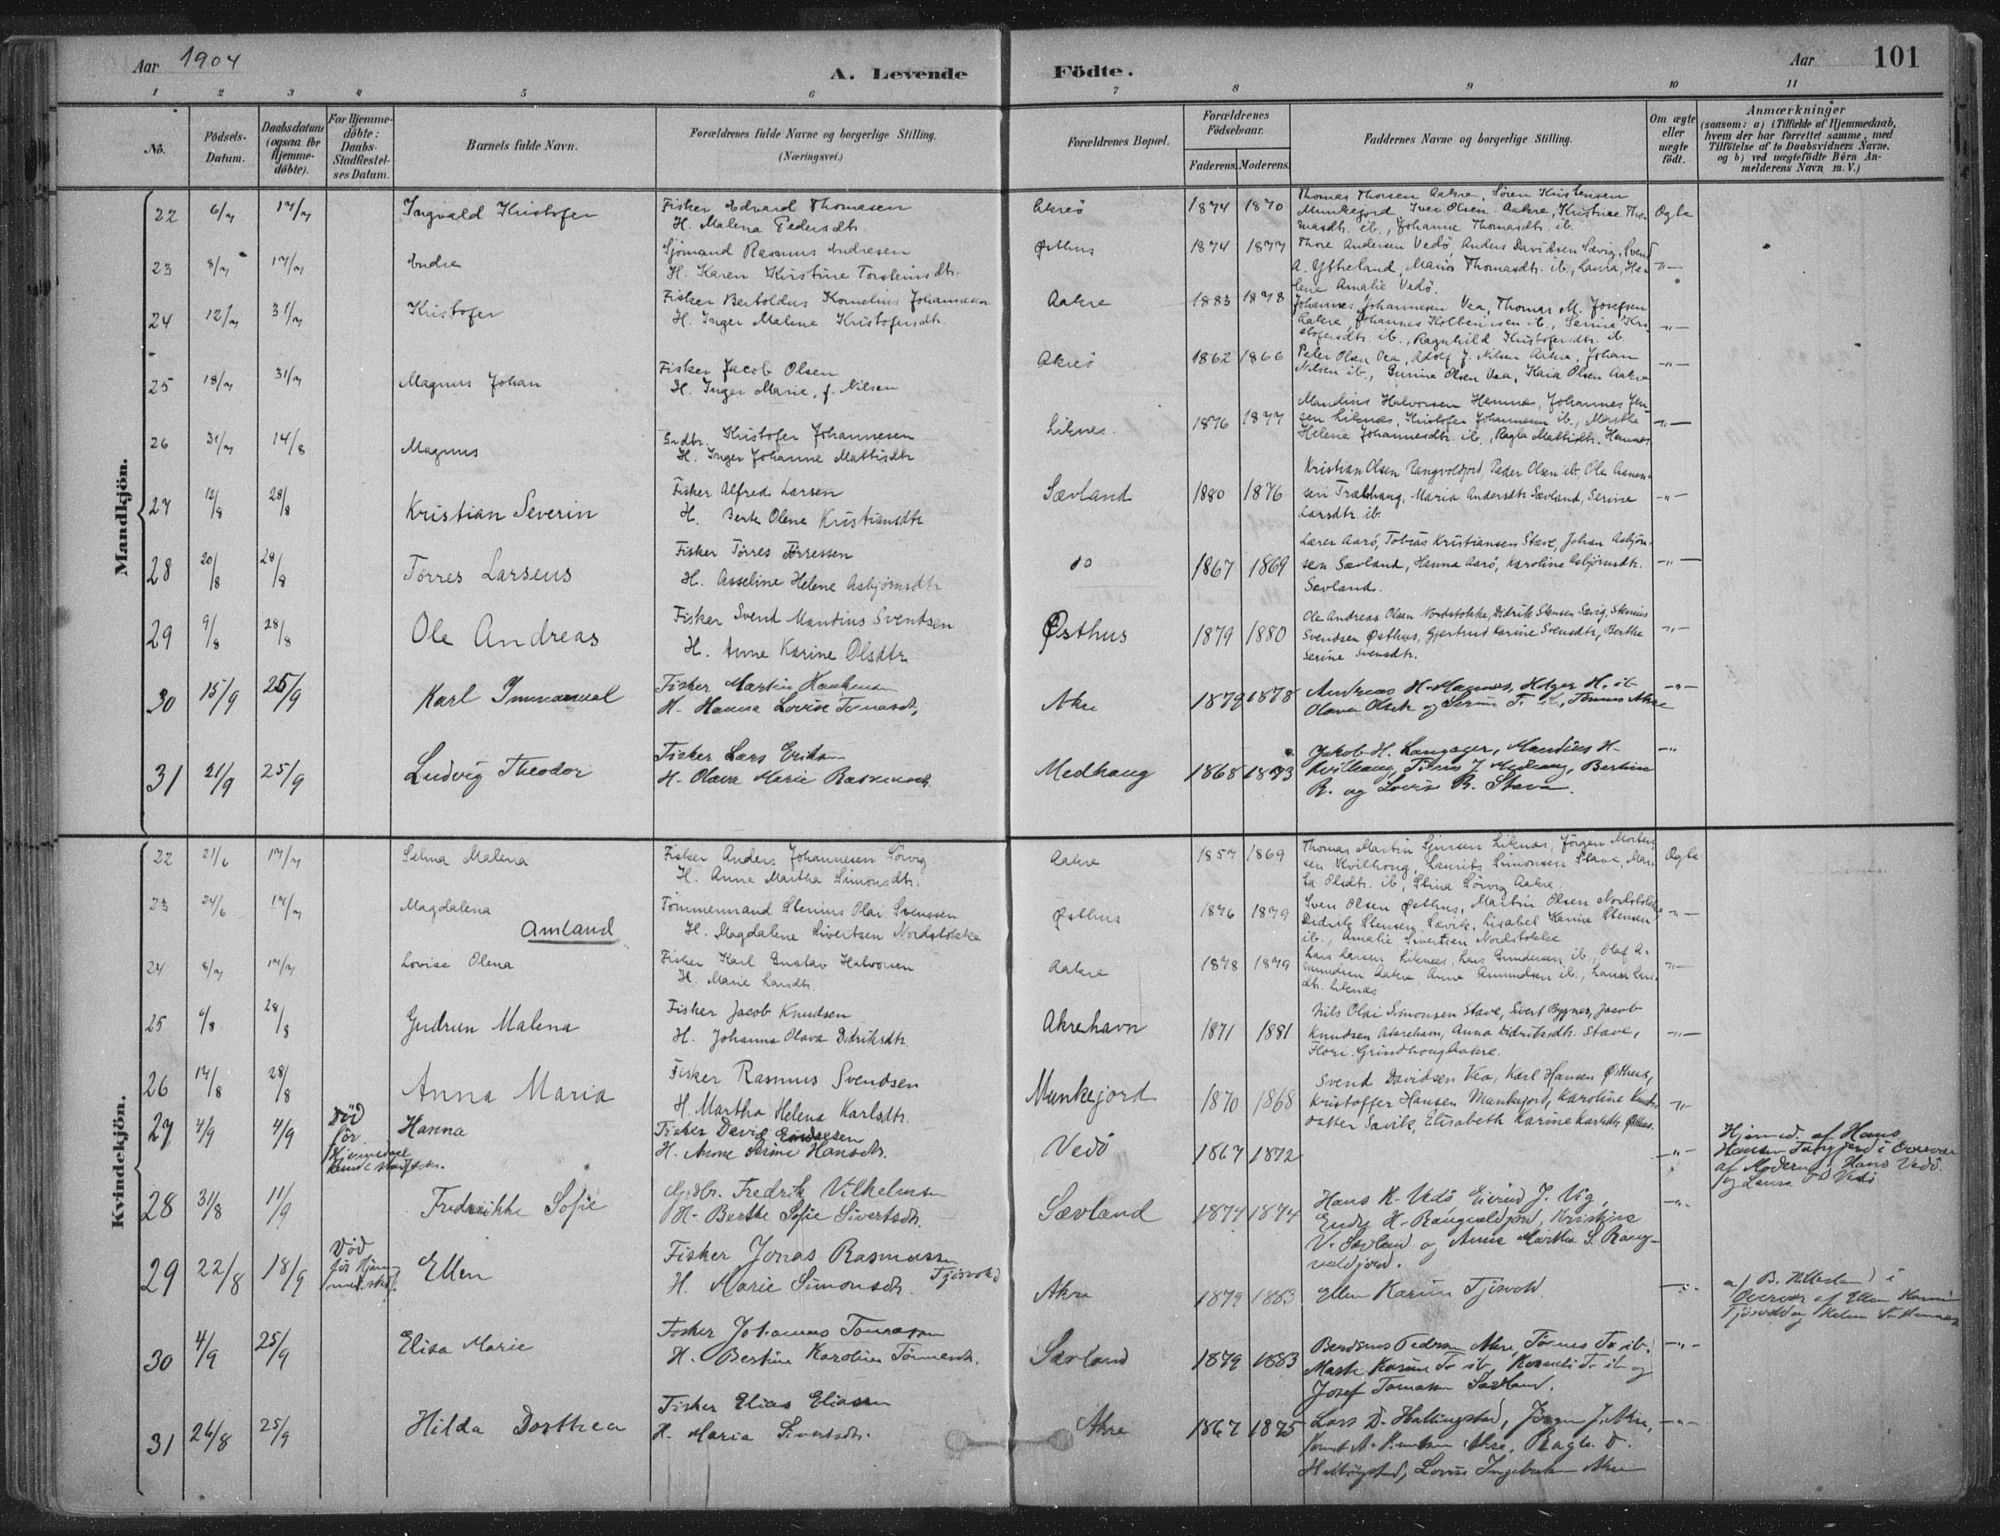 Aar 1904
A. Levende Födte.
Aar 101
1 2 3 4 5 6 7 8 9 10 11
No.
Födsels-Datum.
Daabsdatum (ogsaa for Hjemme-döbte).
For Hjemme-döbte: Daabs-Stadfæstel-ses Datum.
Barnets fulde Navn.
Forældrenes fulde Navne og borgerlige Stilling.
(Næringsvei.)
Forældrenes Bopæl.
Forældrenes Födselsaar.
Faderens. Moderens.
Faddernes Navne og borgerlige Stilling.
Om ægte eller uægte födt.
Anmærkninger
(saasom: a) i Tilfælde af Hjemmedaab,
hvem der har forrettet samme, med
Tilföielse af to Daabsvidners Navne.
og b) ved uægtefödte Börn An-
melderens Navn m.V.)
Mandkjön.
22 6/7 17/7 Ingvald Kristofer
Fisker Edvard Thomasen
H. Malena Pedersdtr.
Akreö 1874 1870
Thomas Thorsen Aakre, Sören Kristensen
Munkejord, Iver Olsen Aakre, Kristine Tho-
masdtr. ib., Johanne Thomasdtr. ib.
Ogte
23 8/7 17/7 Andre
Sjömand Rasmus Andresen
H. Karen Kristine Torsteinsdtr.
Østhus 1874 1877
Thore Andersen Vedö, Anders Davidsen Sævig, Svend
A. Ytreland, Maria Thomasdtr. ib., Laura, He-
lene Amalie Vedö.
-"-
24 12/7 31/7 Kristofer
Fisker Bertoldus Kornelius Johannesen
H. Inger Malene Kristofersdtr.
Aakre 1883 1878
Johannes Johannesen Vea, Thomas M. Josefsen
Aakre, Johannes Kolbeinsen ib., Serine Kri-
stofersdtr. ib., Ragnhild Kristofersdtr. ib.
-"-
25 18/7 31/7 Magnus Johan
Fisker Jacob Olsen
H. Inger Marie, f. Nilsen
Akreö 1862 1866
Peder Olsen Vea, Adolf J. Nilsen Aakre, Johan
Nilsen ib., Gurine Olsen Vea, Kaia Olsen Aakre
-"-
26 31/7 14/8 Magnus
Grdbr. Kristofer Johannesen
H. Inger Johanne Mattisdtr
Liknes 1876 1877
Mandius Halvorsen Hemnes, Johannes Jen-
sen Liknes, Kristofer Johannesen ib., Marthe
Helene Johannesdtr. ib., Ragla Mattisdtr. Hemnes
-"-
27 12/8 28/8 Kristian Severin
Fisker Alfred Larsen
H. Berte Olene Kristiansdtr
Sævland 1880 1876
Kristian Olsen Rangvoldjord, Peder Olsen ib. Ole Asmun-
sen Trælhaug, Maria Andersdtr Sævland, Serine
Larsdtr. ib.
-"-
28 20/8 28/8 Törres Larseus
Fisker Törres Törressen
H. Asseline Helene Asbjörnsdtr
do 1867 1869
Lærer Aarö, Tobias Kristiansen Stave, Johan Asbjörn-
sen Sævland, Hanna Aarö, Karoline Asbjörnsdtr.
Sævland.
-"-
29 9/8 28/8 Ole Andreas
Fisker Svend Mandius Svendsen
H. Anne Karine Olsdtr
Østhus 1879 1880
Ole Andreas Olsen Nordstokke, Didrik Stensen Sævig, Stenius
Svendsen Østhus, Gjertrud Karine Svensdtr, Berthe
Serine Svensdtr.
-"-
30 15/9 25/9 Karl Immanuel
Fisker Martin Haakensen
H. Hanna Lovise Tomasdt,
Akre 1879 1878
Andreas H. Hemnes, Holger H. ib
Olava Olsdr og Serine T. ib., Tönnes Akre
-"-
31 21/9 25/9 Ludvig Theodor
Fisker Lars Eriksen
H. Olava Marie Rasmusdt.
Medhaug 1868 1873
Jakob H. Langager, Mandius H.
Kvilhaug, Tönnes J. Medhaug, Bertine
R. og Lovise R. Stave.
-"-
Kvindekjön.
22 21/6 17/7 Selma Malena
Fisker Anders Johannesen Sörvig
H. Anne Martha Simonsdtr.
Aakre 1857 1869
Thomas Martin Sjursen Liknæs, Jörgen Morten-
sen Kvilhaug, Laurits Simonsen Stave, Mar-
ta Olsdtr. ib., Stina Sörvig Aakre
Ogte
23 24/6 17/7 Magdalena
Amland
Tömmermand Stenius Olai Svensen
H. Magdalene Sivertsen Nordstokke
Østhus 1876 1879
Sven Olsen Østhus, Martin Olsen Nordstokke,
Didrik Stensen Sævik, Lisabet Karine Stensen
ib., Amalie Sivertsen Nordstokke
-"-
24 8/7 17/7 Lovise Olena
Fisker Karl Gustav Halvorsen
H. Marie Larsdtr.
Aakre 1878 1879
Lars Larsen Liknæs, Lars Gundersen ib., Olaf A-
mundsen Aakre, Anna Amundsen ib., Laura Lars-
dtr. Liknæs
-"-
25 6/8 28/8 Gudrun Malena
Fisker Jacob Knudsen
H. Johanna Olava Didriksdtr.
Akrehavn 1871 1881
Nils Olai Simonsen Stave, Sivert Bygnes, Jacob
Knudsen Akrehavn, Anna Didriksdtr. Stave,
Flori. Grindhaug Aakre.
-"-
26 14/8 28/8 Anna Maria
Fisker Rasmus Svendsen
H. Martha Helena Karlsdtr.
Munkejord 1870 1868
Svend Davidsen Vea, Karl Hansen Østhus,
Kristoffer Hansen Munkejord, Karoline Knuds-
datter Sævik, Elisabeth Karine Karlsdtr Østhus.
-"-
27 4/9 4/9 Död för Hjemmedaab kunde stadfæstes.
Hanna
Fisker David Endresen
H. Anne Serine Hansdtr.
Vedö 1867 1872
-"-
Hjemmed. af Hans
Hansen i Overvær
af Moderen, Hans Vedö
og Laura Vedö
28 31/8 11/9 Fredrikke Sofie
Grdbr. Fredrik Vilhelmsen
H. Berthe Sofie Sivertsdtr.
Sævland 1877 1874
Hans K. Vedö Eivind J. Vig,
Endre H. Rangvaldjord, Kristine
V. Sævland og Anne Martha S. Rang-
valdjord.
-"-
29 22/8 18/9 Död för Hjem-med. stadf.
Ellen
Fisker Jonas Rasmussen
H. Marie Simonsdtr. Tjösvold
Akre 1879 1883
Ellen Karine Tjösvold.
-"-
af B. i
Overvær af Ellen Karine
Tjösvold og Helene
30 4/9 25/9 Elisa Marie
Fisker Johannes Tomasson
H. Bertine Karoline Tönnesdtr.
Sævland 1879 1883
Berdines Pedersen Akre, Tönnes T. ib.
Marte Karine T. ib, Korneli T. ib og
Josef Tomasson Sævland.
-"-
31 26/8 25/9 Hilda Dorthea
Fisker Elias Eliassen
H. Maria Sivertsdtr.
Akre 1867 1875
Lars D. Hallingstad, Jörgen J. Akre,
Knut A. Knutsen Akre, Ragla D.
Hallingstad, Lovise Ingebretsen Akre
-"-